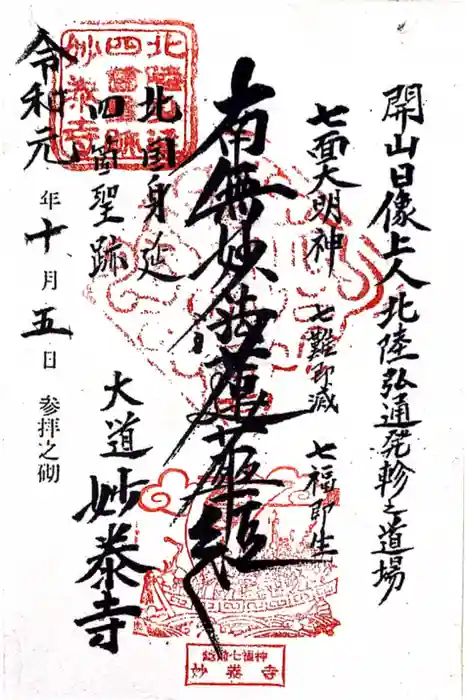 開山日像上人北陸弘通発軫之道場
七面大明神 七難即滅 七福即生
南無妙法蓮華経
北国身延
四箇聖跡
大道 妙泰寺
令和元年十月五日 参拝之砌
妙泰寺